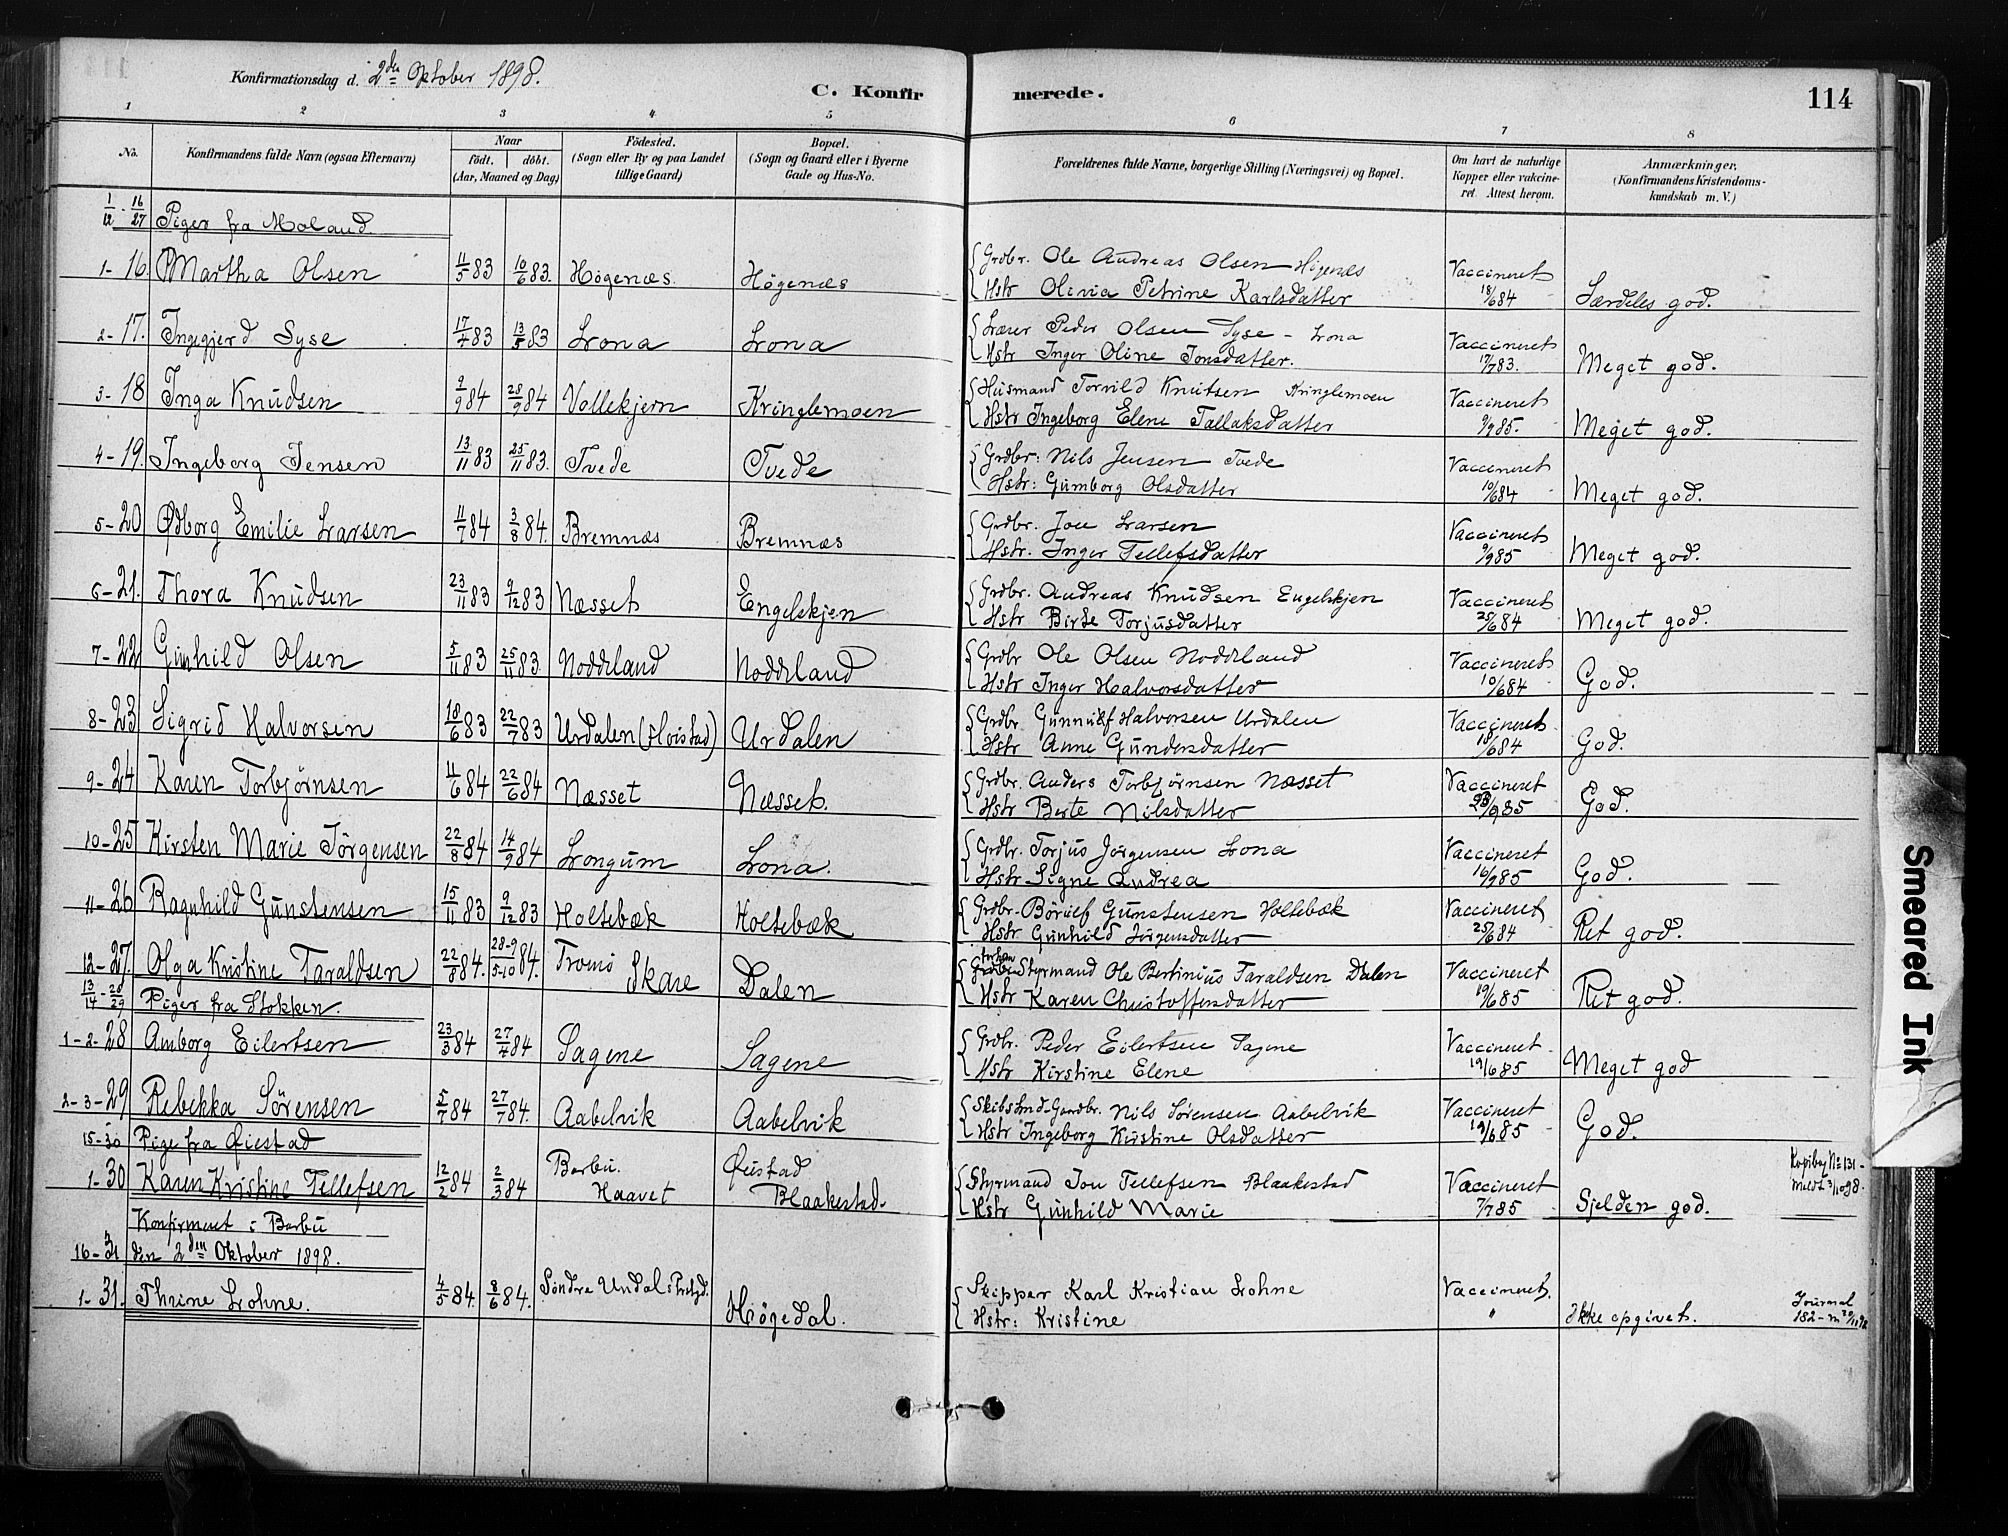 Konfirmationsdag d. 2den Oktober 1898.
C. Konfirmerede.
114
1 2 3 4 5 6 7 8
No.
Konfirmandens fulde Navn (ogsaa Efternavn)
Naar
födt. döbt.
(Aar, Maaned og Dag)
Födested.
(Sogn eller By og paa Landet
tillige Gaard)
Bopæl.
(Sogn og Gaard eller i Byerne
Gade og Hus-No.
Forældrenes fulde Navne, borgerlige Stilling (Næringsvei) og Bopæl.
Om havt de naturlige
Kopper eller vakcine-
ret. Attest herom.
Anmærkninger.
(Konfirmandens Kristendoms-
kundskab m. V.)
1/12 - 16/27 Piger fra Moland
1-16. Martha Olsen 11/5 83 10/6 83. Høgenæs. Høgenæs
Grdbr. Ole Andreas Olsen Høgenæs
Hstr Olivia Petrine Karlsdatter
Vaccineret 18/6 84 Særdeles god.
2-17. Ingegjerd Syse 17/4 83 13/5 83 Lona Lona
Lærer Peder Olsen Syse - Lona
Hstr Inger Oline Jonsdatter.
Vaccineret 17/7 83. Meget god.
3-18 Inga Knudsen 2/9 84 28/9 84 Vollekjern Kringlemoen
Husmand Torvild Knutsen Kringlemoen
Hstr Ingeborg Elene Tallaksdatter
Vaccineret 9/9 85. Meget god.
4-19. Ingeborg Jensen 13/11 83 25/11 83. Tvede Tvede
Grdbr: Nils Jensen Tvede
Hstr: Gumborg Olsdatter
Vaccineret 10/6 84 Meget god.
5-20 Ødborg Emilie Larsen 11/7 84 3/8 84. Bremnæs Bremnæs
Grdbr. Jon Larsen
Hstr. Inger Tellefsdatter
Vaccineret 9/9 85 Meget god.
6-21. Thora Knudsen 23/11 83 9/12 83 Næsset Engelskjen
Grdbr. Andreas Knudsen Engelskjen
Hstr Birte Torjusdatter
Vaccineret 25/6 84 Meget god.
7-22 Gunhild Olsen 5/11 83 25/11 83 Noddeland Noddeland
Grdbr Ole Olsen Noddeland
Hstr Inger Halvorsdatter
Vaccineret 10/6 84 God.
8-23 Sigrid Halvorsen 18/6 83 22/7 83 Urdalen (Floistad) Urdalen
Grdbr. Gunnulf Halvorsen Urdalen
Hstr Anne Gundersdatter
Vaccineret 18/6 84 God.
9-24 Karen Torbjørnsen 4/6 84 22/6 84 Næsset Næsset.
Grdbr. Anders Torbjørnsen Næsset
Hstr Berte Nilsdatter
Vaccineret 23/9 85 God.
10-25 Kirsten Marie Jörgensen 22/8 84 14/9 84 Longum Lona.
Grdbr. Torjus Jörgensen Lona
Hstr Signe Andrea
Vaccineret 16/9 85 God.
11-26 Ragnhild Gunstensen 15/11 83 9/12 83 Holtebæk Holtebæk
Grdbr. Borulf Gunstensen Holtebæk
Hstr Gunhild Jörgensdatter
Vaccineret 25/6 84 Ret god.
12-27. Olga Kristine Taraldsen 22/8 84. 28-9/5-10 84. Tromö Skare Dalen
Styrmand Ole Bertinius Taraldsen Dalen
Hstr Karen Christoffersdatter
Vaccineret 19/6 85 Ret god.
13/14 - 28/29 Piger fra Stokken.
1-2-28 Amborg Eilertsen 23/3 84 27/4 84 Sagene Sagene
Grdbr. Peder Eilertsen Sagene
Hstr Kirstine Elene
Vaccineret 19/6 85 Meget god
2-3-29 Rebekka Sörensen 5/7 84 27/7 84. Aabelvik Aabelvik
Nils Sørensen Aabelvik
Hstr Ingeborg Kirstine Olsdatter
Vaccineret 19/6 85 God.
15-30 Pige fra Øiestad
1-30 Karen Kristine Tellefsen 12/2 84 2/3 84 Barbu. Haavet Øiestad Blaakestad.
Styrmand Jon Tellefsen Blaakestad
Hstr Gunhild Marie
Vaccineret 7/7 85 Sjelden god.
Kopibog No 131 -
meldt 3/10 98.
Konfirmeret i Barbu
16-31 den 2den Oktober 1898.
1-31. Thrine Lohne. 4/5 84. 8/6 84. Söndre Undals Prstgd. Høgedal.
Skipper Karl Kristian Lohne
Hstr: Kristine
Vaccineret. " Ikke opgivet.
Journal
182 -
Smeared Ink